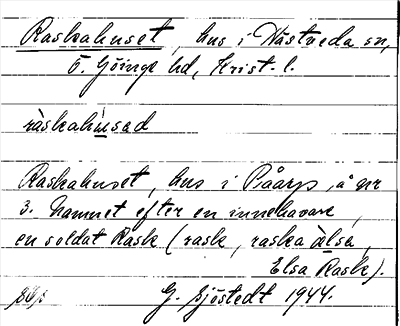 Raskahuset, hus i Västveda sn,
Ö. Göinge hd, Krist. l.
raskahúsad
Raskahuset, hus i Båarp, å nr
3. Namnet efter en innehavare,
en soldat Rask (rask, raska älsa,
Elsa Rask).
G. Sjöstedt 1944.